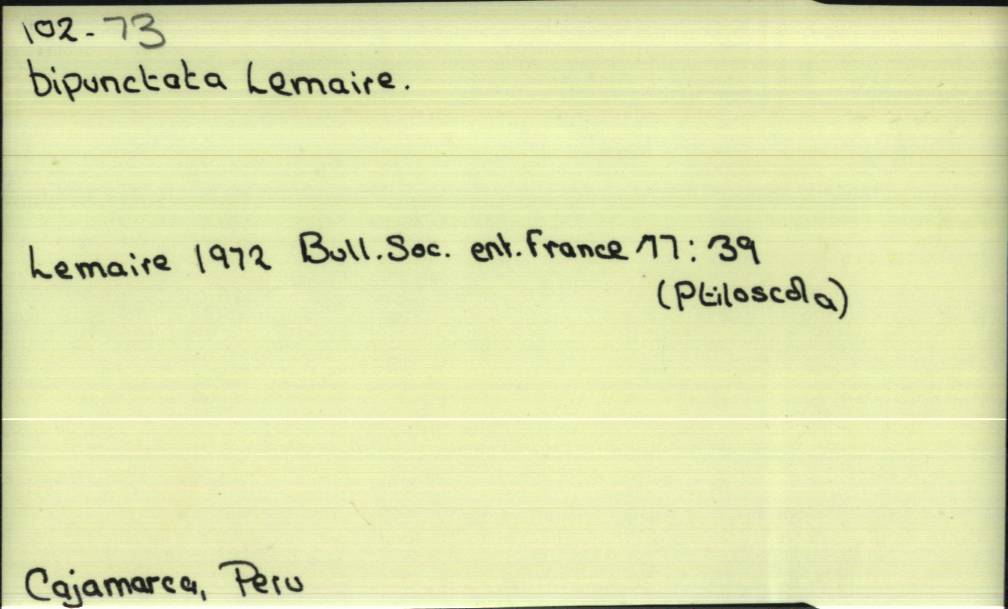 102-73
bipunctata Lemaire.
Lemaire 1972 Bull. Soc. ent. France 77: 39
(Ptiloscola)
Cajamarca, Peru